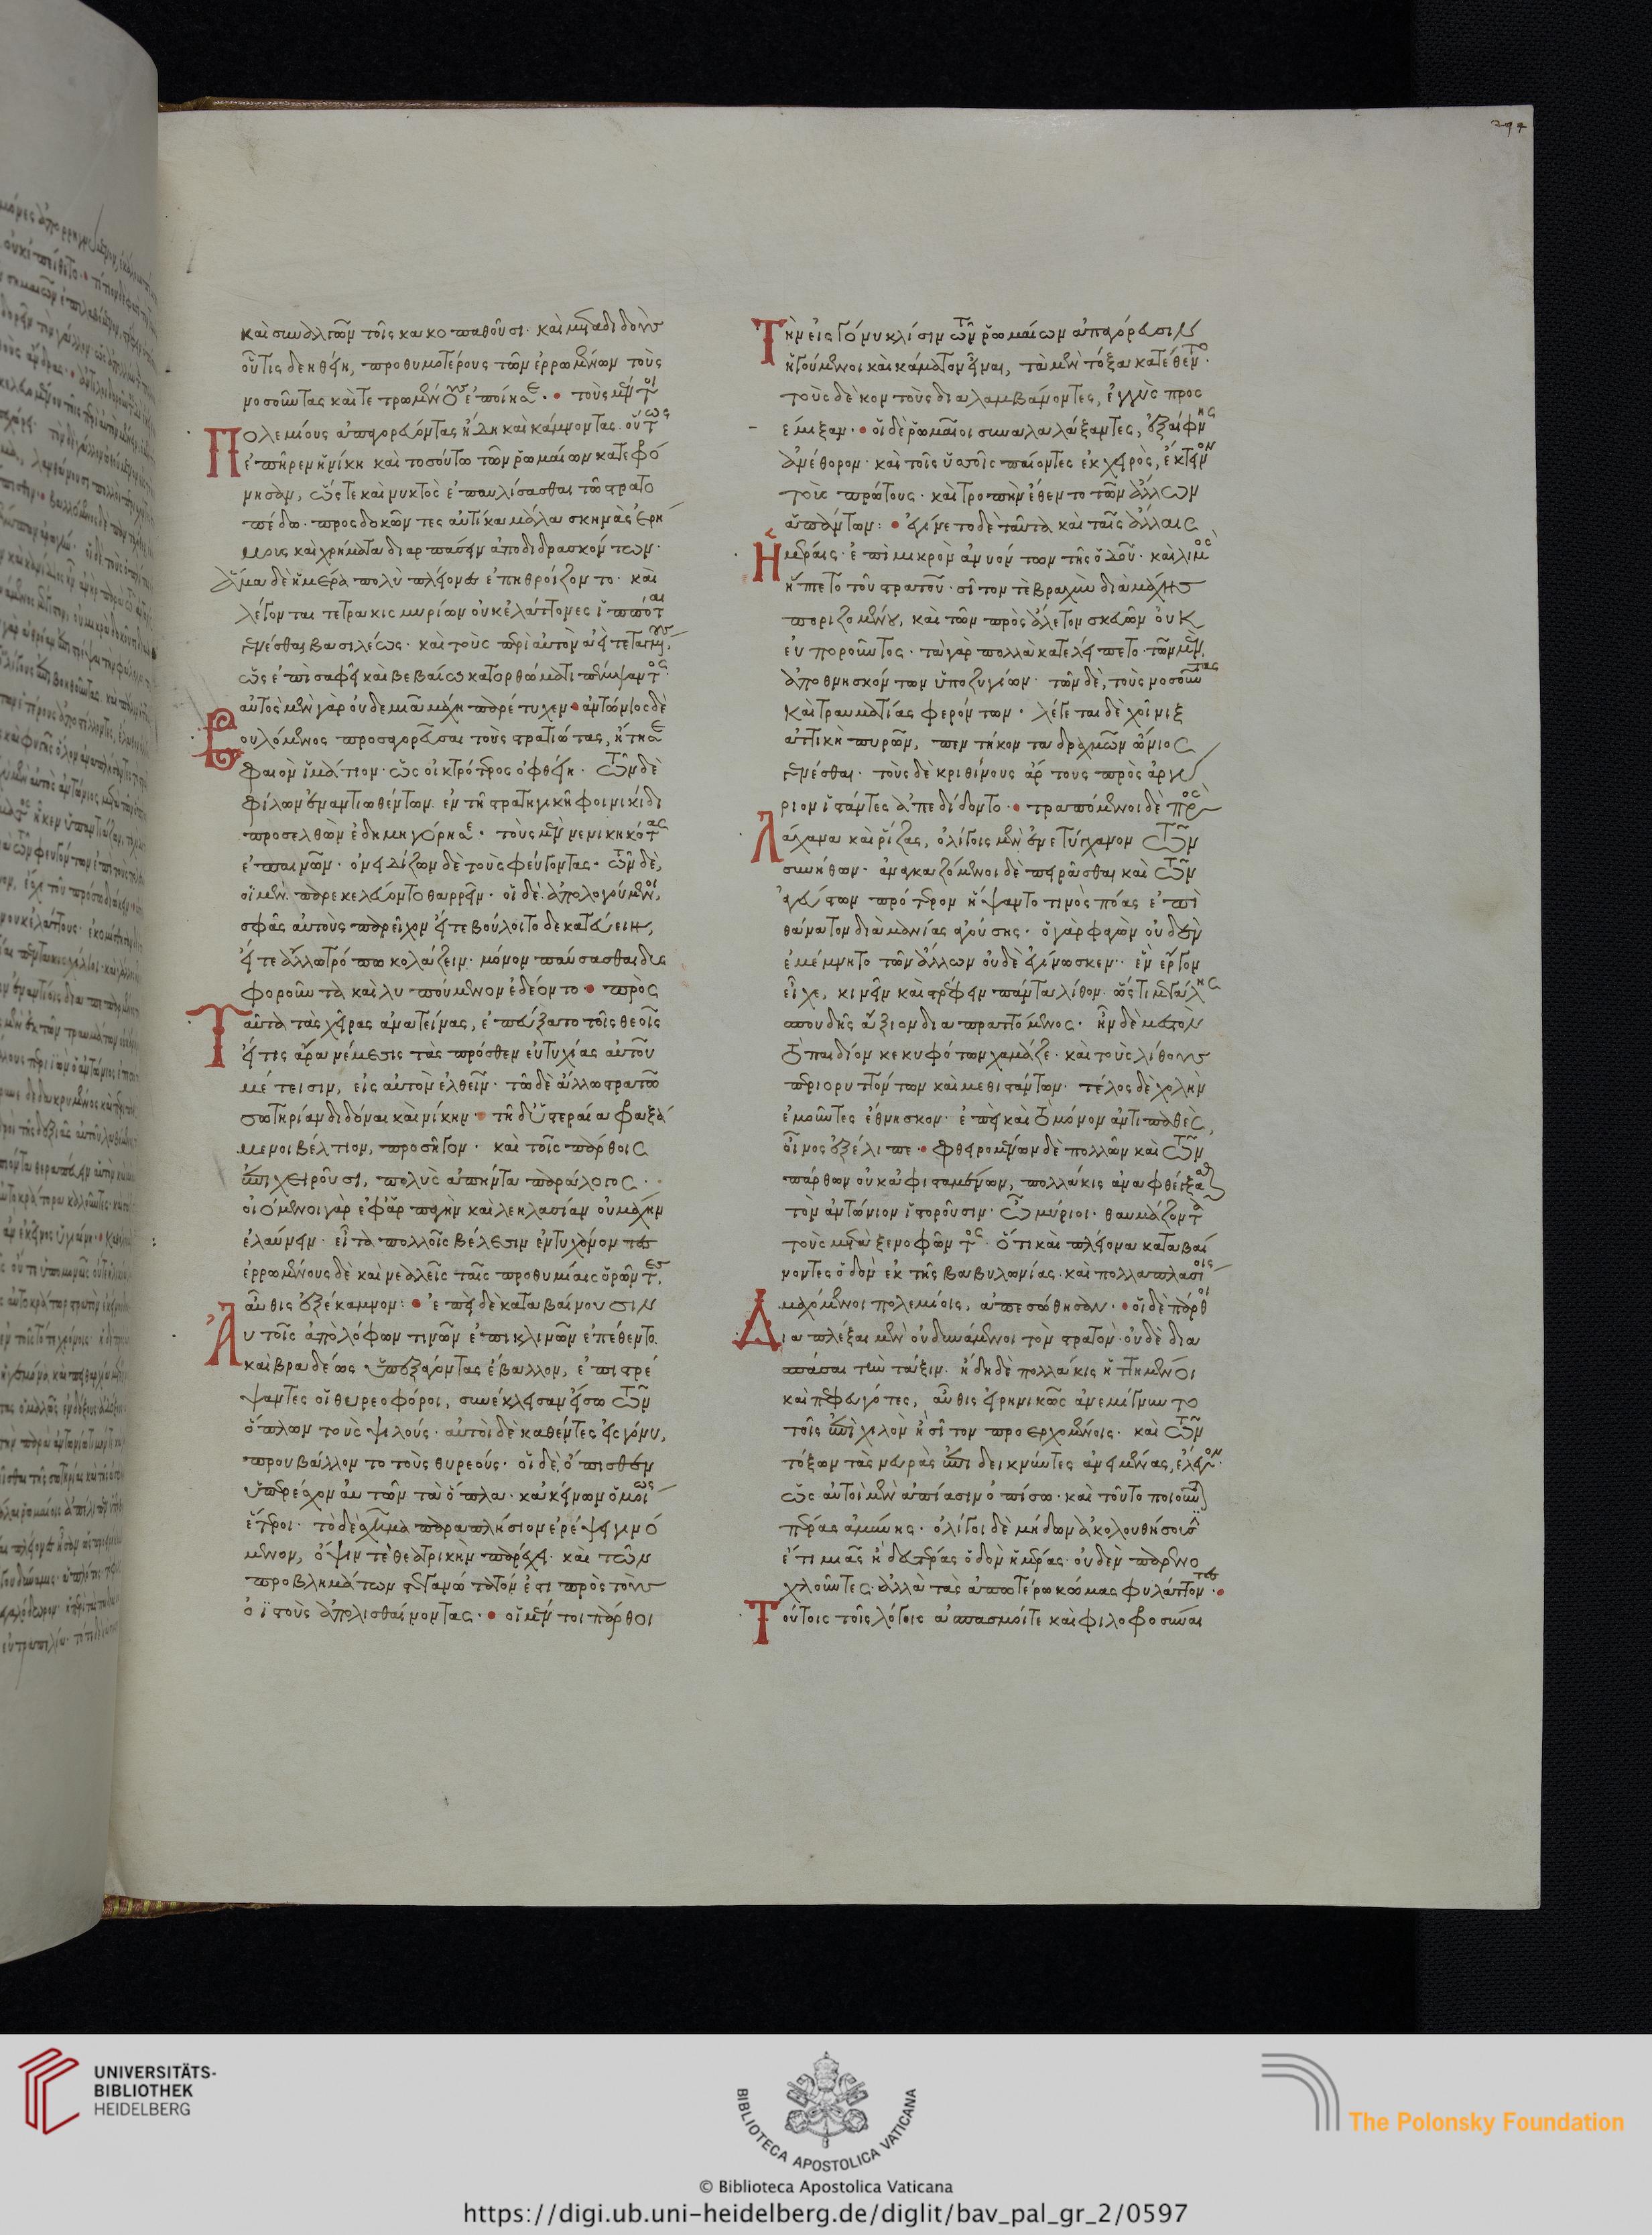 καὶ συναλγῶν τοῖς κακοπαθοῦσι· καὶ μεταδιδοὺς
οὗτις δεηθείη, προθυμοτέρους τῶν ἐρρωμένων τοὺς
νοσοῦντας καὶ τετρωμένους ἐποίησε· τοὺς μέντοι
Πολεμίους ἀπαγορεύοντας ἤδη καὶ κάμνοντας οὕτως
ἐπῆρεν ἡ νίκη καὶ τοσοῦτω τῶν ῥωμαίων κατεφρό
νησαν, ὥστε καὶ νυκτὸς ἐπαυλίσασθαι τῶ στρατο
πέδω· προσδοκῶντες αὐτίκα μάλα σκηνὰς ἐρή
μους καὶ χρήματα διαρπάσειν ἀποδιδρασκόντων·
ἅμα δὲ ἡμέρα πολὺ πλείονες ἐπηθροίζοντο· καὶ
λέγονται τετρακις μυρίων οὐκ ἐλάττονες ἱππόται
γενέσθαι βασιλέως· καὶ τοὺς περὶ αὐτὸν ἀεὶ τεταγμένους,
ὡς ἐπὶ σαφεῖ καὶ βεβαίω κατορθώματι πέμψαντος·
αὐτὸς μὲν γὰρ οὐδεμιᾶ μάχη παρέτυχεν· ἀντώνιος δὲ
Βουλόμενος προσαγορεῦσαι τοὺς στρατιώτας, ἤτησε
φαιὸν ἱμάτιον· ὡς οἰκτρότερος ὀφθείη· τῶν δὲ
φίλων ἐναντιωθέντων ἐν τῆ στρατηγικῆ φοινικίδι
προσελθὼν ἐδημηγόρησε· τοὺς μὲν νενικηκότας
ἐπαινῶν· ὀνειδίζων δὲ τοὺς φεύγοντας· τῶν δὲ,
οἱ μὲν παρεκελεύοντο θαρρεῖν· οἱ δὲ ἀπολογούμενοι,
σφᾶς αὐτοὺς παρεῖχον εἴτε βούλοιτο δεκατεύειν,
εἴτε ἄλλω τρόπω κολάζειν· μόνον παύσασθαι δυς
φοροῦντα καὶ λυπούμενον ἐδέοντο· πρὸς
Ταῦτα τὰς χεῖρας ἀνατείνας, ἐπεύξατο τοῖς θεοῖς
εἴ τις ἄρα νέμεσις τὰς πρόσθεν εὐτυχίας αὐτοῦ
μέτεισιν, εἰς αὐτὸν ἐλθεῖν· τῶ δὲ ἄλλω στρατῶ
σωτηρίαν διδόναι καὶ νίκην· τῆ δ' ὑστεραία φραξά
μενοι βέλτιον, προσῆγον· καὶ τοῖς πάρθοις
ἐπιχειροῦσι, πολὺς ἀπήντα παράλογος·
οἰόμενοι γὰρ ἐφ' ἁρπαγὴν καὶ λεηλασίαν οὐ μάχην
ἐλαύνειν· εἶτα πολλοῖς βέλεσιν ἐντυχόντες
ἐρρωμένους δὲ καὶ νεαλεῖς ταῖς προθυμίαις ὁρῶντες,
αὖθις ἐξέκαμνον· ἐπεὶ δὲ καταβαίνουσιν
Αὐτοῖς ἀπὸ λόφων τινῶν ἐπικλινῶν ἐπέθεντο.
καὶ βραδέως ὑπεξάγοντας ἔβαλλον, ἐπιστρέ
ψαντες οἱ θυρεοφόροι, συνέκλεισαν εἴσω τῶν
ὅπλων τοὺς ψιλούς· αὐτοὶ δὲ καθέντες εἰς γόνυ,
προυβάλλοντο τοὺς θυρεούς· οἱ δὲ ὄπισθεν
ὑπερέσχον αὐτῶν τὰ ὅπλα· κἀκείνων ὁμοίως
ἕτεροι· τὸ δὲ σχῆμα παραπλήσιον ἐρέψει γινό
μενον, ὄψιν τε θεατρικὴν παρέχει· καὶ τῶν
προβλημάτων στεγανώτατόν ἐστι πρὸς τοὺς
ὀϊστοὺς ἀπολισθαίνοντας· οἱ μέντοι πάρθοι
Τὴν εἰς γόνυ κλίσιν τῶν ῥωμαίων ἀπαγόρευσιν
ἡγούμενοι καὶ κάματον εἶναι, τὰ μὲν τόξα κατέθεντο·
τοὺς δὲ κοντοὺς διαλαμβάνοντες, ἐγγὺς προσ
έμιξαν· οἱ δὲ ῥωμαῖοι συναλαλάξαντες, ἐξαίφνης
ἀνέθορον· καὶ τοῖς ὑσσοῖς παίοντες ἐκ χειρὸς, ἔκτεινον
τοὺς πρώτους· καὶ τροπὴν ἔθεντο τῶν ἄλλων
ἁπάντων· ἐγίνετο δὲ ταῦτα καὶ ταῖς ἄλλαις
Ἡμέραις· ἐπὶ μικρὸν ἀνυόντων τῆς ὁδοῦ· καὶ λιμὸς
ἥπτετο τοῦ στρατοῦ· σῖτόν τε βραχὺν διὰ μάχης
ποριζομένου, καὶ τῶν πρὸς ἀλετὸν σκευῶν οὐκ
εὐποροῦντος· τὰ γὰρ πολλὰ κατελείπετο· τῶν μὲν
ἀποθνησκόντων ὑποζυγίων· τῶν δὲ, τοὺς νοσοῦντας
καὶ τραυματίας φερόντων· λέγεται δὲ χοῖνιξ
ἀττικὴ πυρῶν, πεντήκοντα δραχμῶν ὤνιος
γενέσθαι· τοὺς δὲ κριθίνους ἄρτους πρὸς ἀργύ
ριον ἱστάντες ἀπεδίδοντο· τραπόμενοι δὲ πρὸς
Λάχανα καὶ ῥίζας, ὀλίγοις μὲν ἐνετύγχανον τῶν
συνήθων· ἀναγκαζόμενοι δὲ πειρᾶσθαι καὶ τῶν
ἀγεύστων πρότερον ἥψαντο τινὸς πόας ἐπὶ
θάνατον διὰ μανίας ἀγούσης· ὁ γὰρ φαγὼν οὐδὲν
ἐμέμνητο τῶν ἄλλων οὐδὲ ἐγίνωσκεν· ἓν ἔργον
εἶχε, κινεῖν καὶ στρέφειν πάντα λίθον· ὥς τι μεγάλης
σπουδῆς ἄξιον διαπραττόμενος· ἦν δὲ μεστὸν
τὸ πεδίον κεκυφότων χαμᾶζε· καὶ τοὺς λίθους
περιορυττόντων καὶ μεθιστάντων· τέλος δὲ χολὴν
ἐμοῦντες ἔθνησκον· ἐπεὶ καὶ τὸ μόνον ἀντιπαθὲς,
οἶνος ἐξέλιπε· φθειρομένων δὲ πολλῶν καὶ τῶν
πάρθων οὐκ ἀφισταμένων, πολλάκις ἀναφθέγξασθαι
τὸν ἀντώνιον ἱστοροῦσιν· ὦ μύριοι· θαυμάζοντα
τοὺς μετὰ ξενοφῶντος· ὅτι καὶ πλείονα καταβαί
νοντες ὁδὸν ἐκ τῆς βαβυλωνίας· καὶ πολλαπλασίοις
μαχόμενοι πολεμίοις, ἀπεσώθησαν· οἱ δὲ πάρθοι
Διαπλέξαι μὲν οὐ δυνάμενοι τὸν στρατὸν· οὐδὲ δια
σπάσαι τὴν τάξιν· ἤδη δὲ πολλάκις ἡττημένοι
καὶ πεφευγότες, αὖθις εἰρηνικῶς ἀνεμίγνυντο
τοῖς ἐπὶ χιλὸν ἢ σῖτον προερχομένοις· καὶ τῶν
τόξων τὰς νευρὰς ἐπιδεικνύντες ἀνειμένας, ἔλεγον·
ὡς αὐτοὶ μὲν ἀπίασιν ὀπίσω· καὶ τοῦτο ποιοῦνται
πέρας ἀμύνης· ὀλίγοι δὲ μήδων ἀκολουθήσουσιν
ἔτι μιᾶς ἢ δευτέρας ὁδὸν ἡμέρας· οὐδὲν παρενο
χλοῦντες· ἀλλὰ τὰς ἀπωτέρω κώμας φυλάττοντες·
Τούτοις τοῖς λόγοις ἀσπασμοί τε καὶ φιλοφροσύναι
294
UNIVERSITÄTS-
BIBLIOTHEK
HEIDELBERG
BIBLIOTECA APOSTOLICA VATICANA
The Polonsky Foundation
© Biblioteca Apostolica Vaticana
https://digi.ub.uni-heidelberg.de/diglit/bav_pal_gr_2/0597